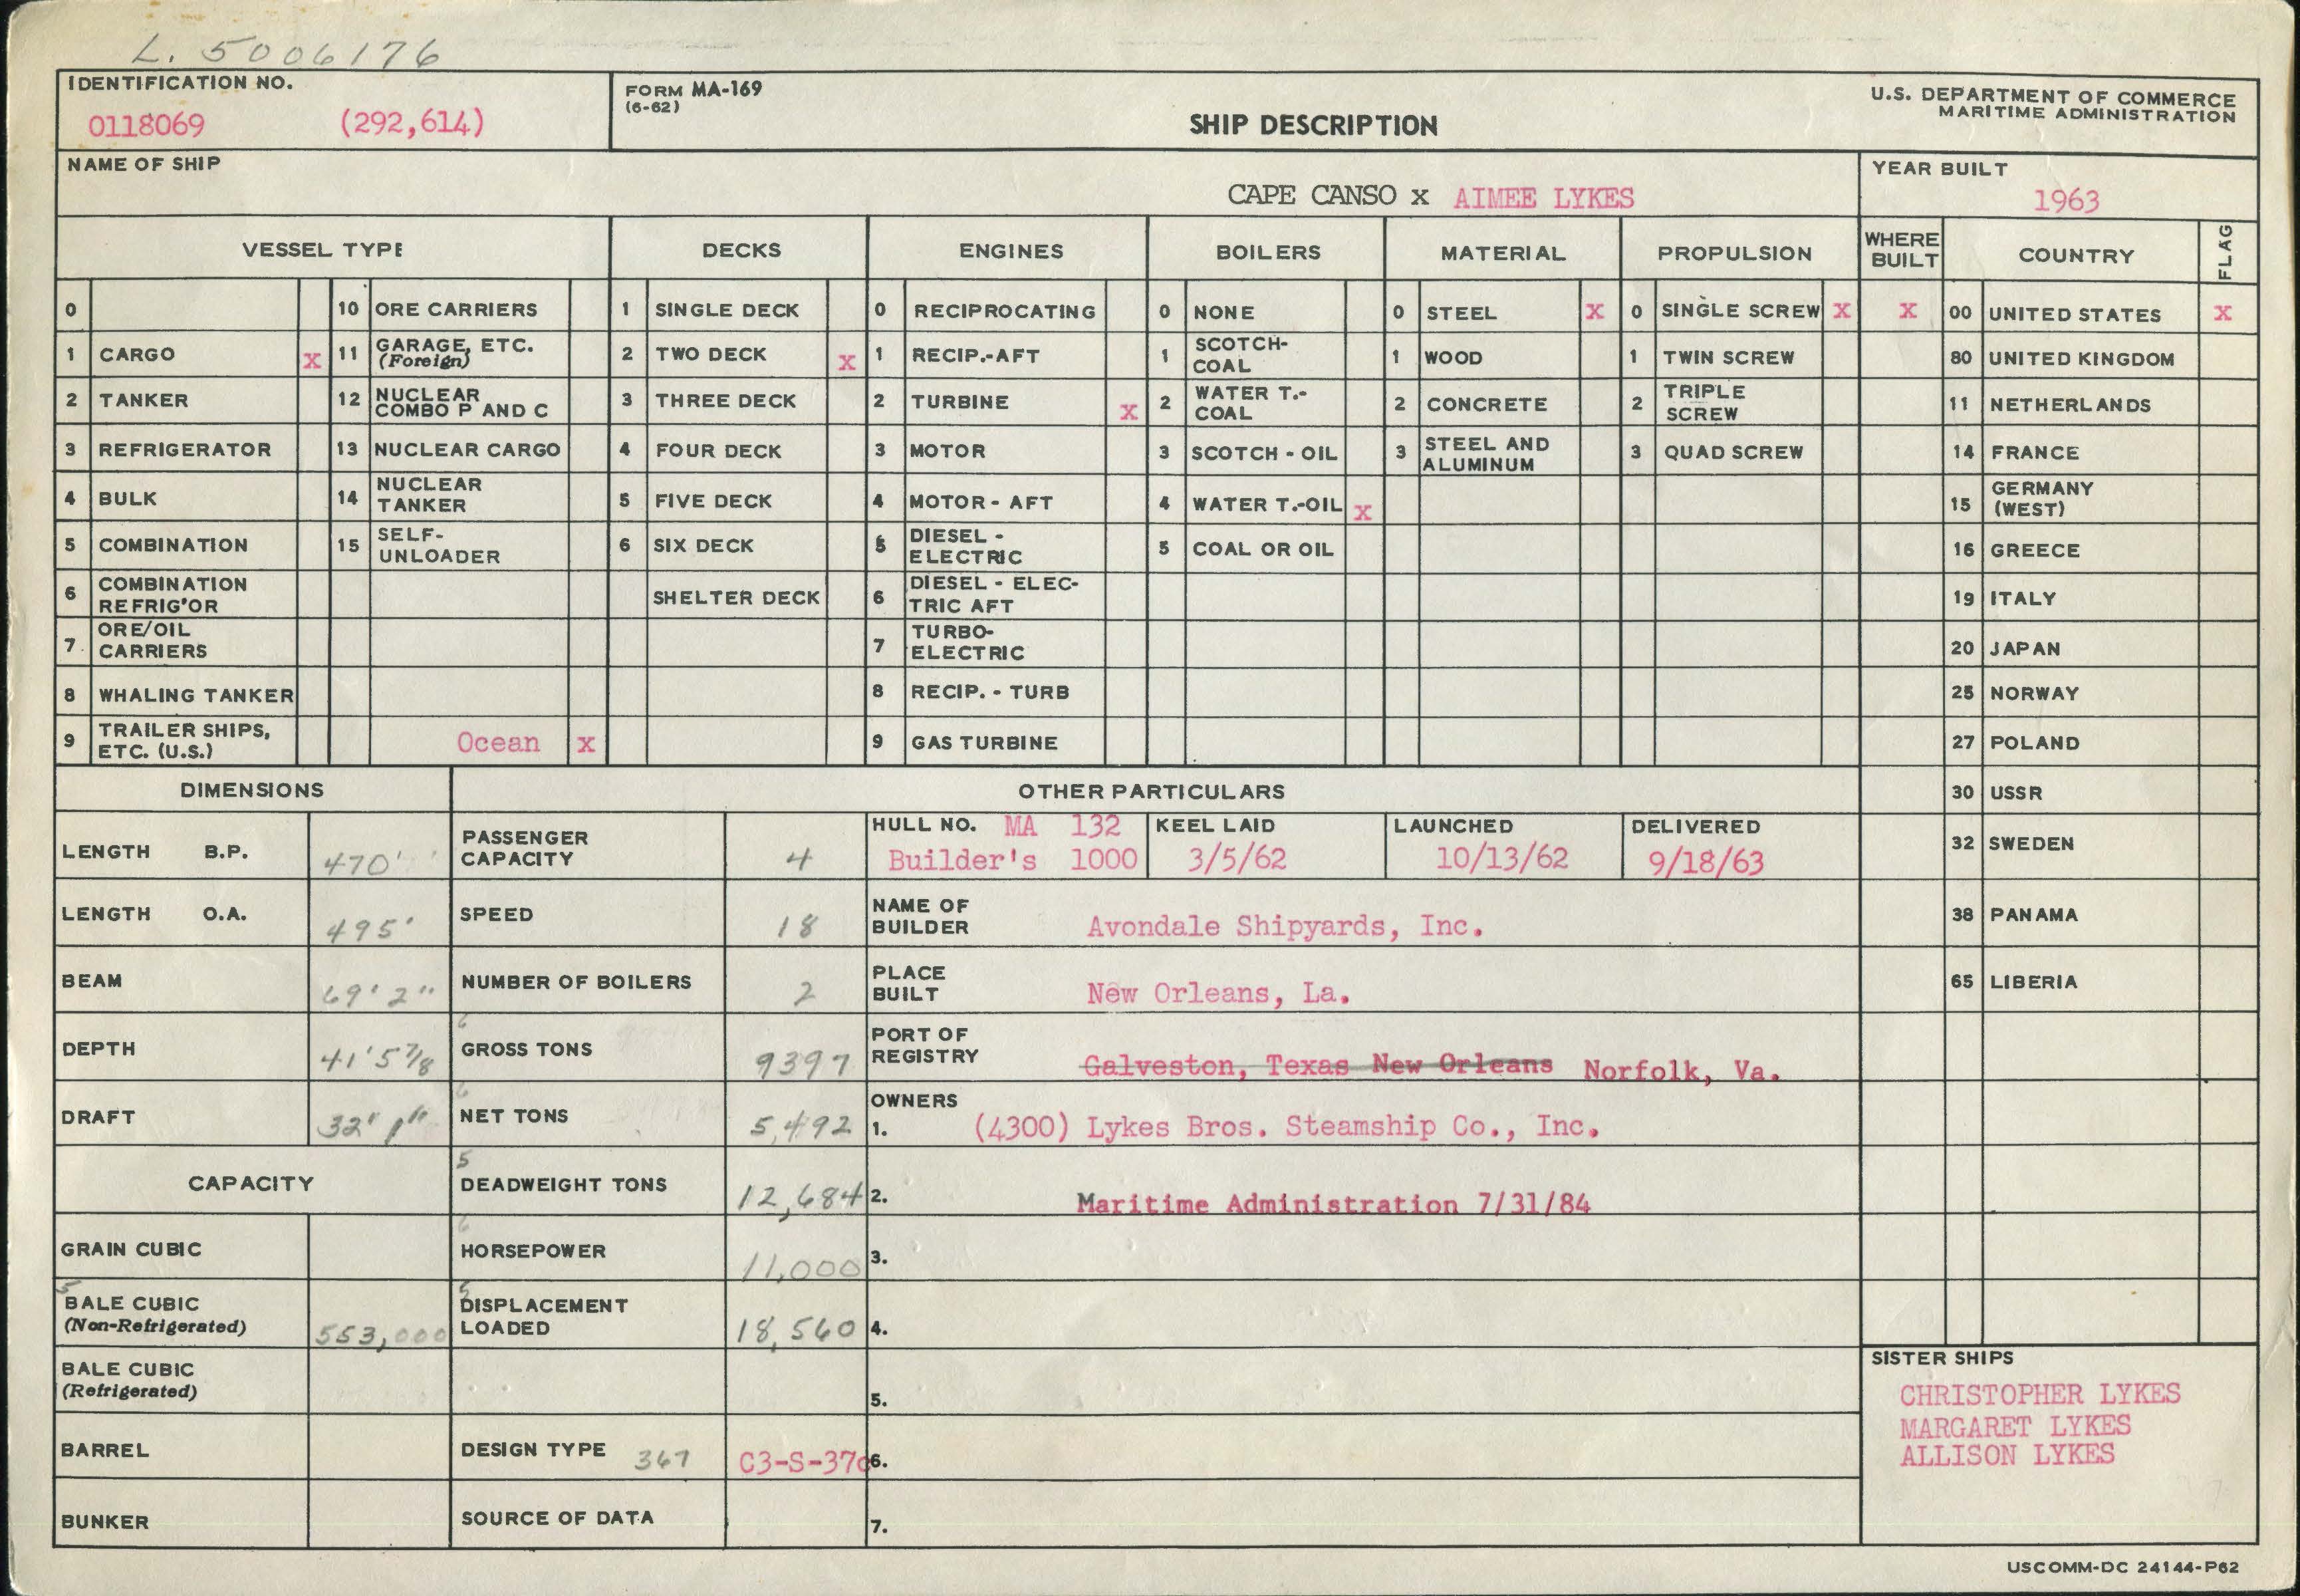 L. 5006176
IDENTIFICATION NO.
0118069 (292,614)
FORM MA-169
(6-62)
SHIP DESCRIPTION
U.S. DEPARTMENT OF COMMERCE
MARITIME ADMINISTRATION
NAME OF SHIP
CAPE CANSO x AIMEE LYKES
YEAR BUILT
1963
VESSEL TYPE DECKS ENGINES BOILERS MATERIAL PROPULSION WHERE BUILT COUNTRY FLAG
0 10 ORE CARRIERS 1 SINGLE DECK 0 RECIPROCATING 0 NONE 0 STEEL x 0 SINGLE SCREW x x 00 UNITED STATES x
1 CARGO x 11 GARAGE, ETC. (Foreign) 2 TWO DECK x 1 RECIP.-AFT 1 SCOTCH-COAL 1 WOOD 1 TWIN SCREW 80 UNITED KINGDOM
2 TANKER 12 NUCLEAR COMBO P AND C 3 THREE DECK 2 TURBINE x 2 WATER T.-COAL 2 CONCRETE 2 TRIPLE SCREW 11 NETHERLANDS
3 REFRIGERATOR 13 NUCLEAR CARGO 4 FOUR DECK 3 MOTOR 3 SCOTCH - OIL 3 STEEL AND ALUMINUM 3 QUAD SCREW 14 FRANCE
4 BULK 14 NUCLEAR TANKER 5 FIVE DECK 4 MOTOR - AFT 4 WATER T.-OIL x 15 GERMANY (WEST)
5 COMBINATION 15 SELF-UNLOADER 6 SIX DECK 5 DIESEL - ELECTRIC 5 COAL OR OIL 16 GREECE
6 COMBINATION REFRIG'OR SHELTER DECK 6 DIESEL - ELECTRIC AFT 19 ITALY
7 ORE/OIL CARRIERS 7 TURBO-ELECTRIC 20 JAPAN
8 WHALING TANKER 8 RECIP. - TURB 25 NORWAY
9 TRAILER SHIPS, ETC. (U.S.) Ocean x 9 GAS TURBINE 27 POLAND
DIMENSIONS OTHER PARTICULARS 30 USSR
LENGTH B.P. 470' PASSENGER CAPACITY 4 HULL NO. MA 132 Builder's 1000 KEEL LAID 3/5/62 LAUNCHED 10/13/62 DELIVERED 9/18/63 32 SWEDEN
LENGTH O.A. 495' SPEED 18 NAME OF BUILDER Avondale Shipyards, Inc. 38 PANAMA
BEAM 69'2" NUMBER OF BOILERS 2 PLACE BUILT New Orleans, La. 65 LIBERIA
DEPTH 41'5 7/8 6 GROSS TONS 9397 PORT OF REGISTRY Galveston, Texas New Orleans Norfolk, Va.
DRAFT 32' 1" 6 NET TONS 5,492 OWNERS 1. (4300) Lykes Bros. Steamship Co., Inc.
CAPACITY 5 DEADWEIGHT TONS 12,684 2. Maritime Administration 7/31/84
GRAIN CUBIC 6 HORSEPOWER 11,000 3.
5 BALE CUBIC (Non-Refrigerated) 553,000 5 DISPLACEMENT LOADED 18,560 4.
BALE CUBIC (Refrigerated) 5.
BARREL DESIGN TYPE 367 C3-S-37c 6.
BUNKER SOURCE OF DATA 7.
SISTER SHIPS
CHRISTOPHER LYKES
MARGARET LYKES
ALLISON LYKES
USCOMM-DC 24144-P62